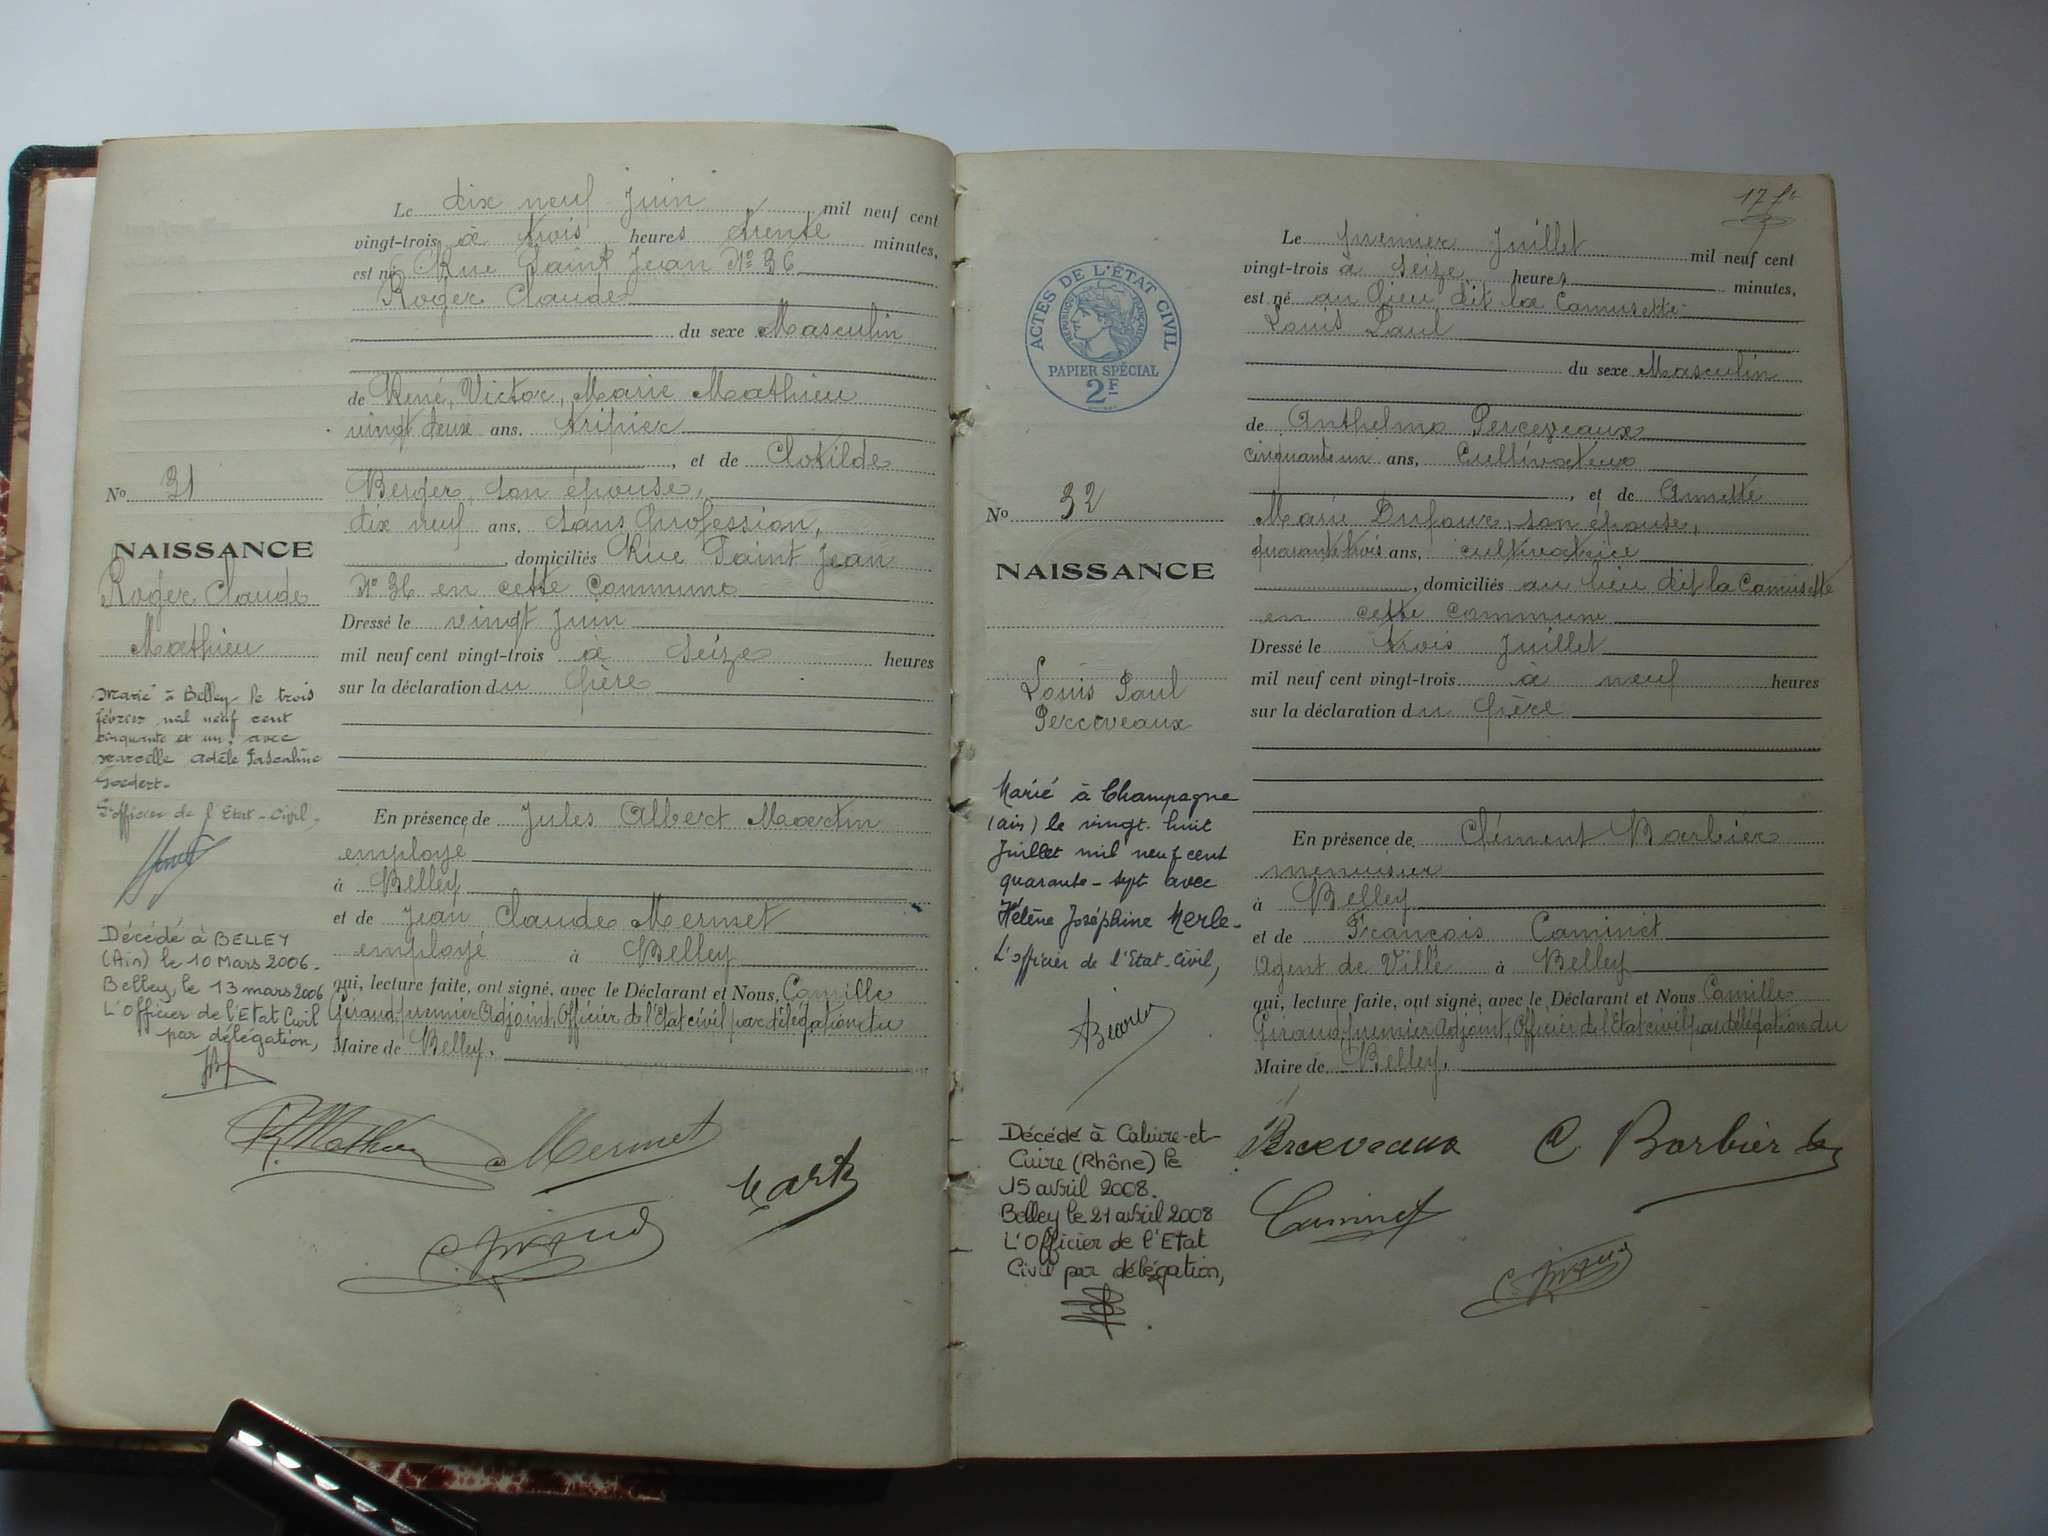 Le dix neuf Juin mil neuf cent
vingt-trois à trois heures trente minutes,
est né Rue Saint Jean N° 36
Roger Claude
du sexe Masculin
de René, Victor, Marie Mathieu
vingt deux ans, tripier
, et de Clotilde
Berger, son épouse,
dix neuf ans, sans profession,
, domiciliés Rue Saint Jean
N° 36 en cette Commune
Dressé le vingt Juin
mil neuf cent vingt-trois à seize heures
sur la déclaration du père
En présence de Jules Albert Martin
employé
à Belley
et de Jean Claude Mermet
employé à Belley
qui, lecture faite, ont signé, avec le Déclarant et Nous, Camille
Giraud, premier Adjoint, Officier de l'Etat civil par délégation du
Maire de Belley.
N° 31
NAISSANCE
Roger Claude
Mathieu
Marié à Belley le trois
février mil neuf cent
cinquante et un, avec
Marcelle Adèle Pascaline
Goedert-
L'officier de l'Etat-Civil,
Décédé à BELLEY
(Ain) le 10 Mars 2006.
Belley, le 13 mars 2006
L'Officier de l'Etat Civil
par délégation,
R. Mathieu
Mermet
Martin
C. Giraud
17
ACTES DE L'ÉTAT CIVIL
RÉPUBLIQUE FRANÇAISE
PAPIER SPÉCIAL
2F
Le premier Juillet mil neuf cent
vingt-trois à seize heures minutes,
est né au lieu dit la Camusette
Louis Paul
du sexe Masculin
de Anthelme Perceveaux
cinquante un ans, cultivateur
, et de Annette
Marie Dufour, son épouse,
quarante trois ans, cultivatrice
, domiciliés au lieu dit la Camusette
en cette commune
Dressé le trois Juillet
mil neuf cent vingt-trois à neuf heures
sur la déclaration du père
En présence de Clément Barbier
menuisier
à Belley
et de François Caminet
Agent de Ville à Belley
qui, lecture faite, ont signé, avec le Déclarant et Nous Camille
Giraud, premier Adjoint, Officier de l'Etat civil par délégation du
Maire de Belley.
N° 32
NAISSANCE
Louis Paul
Perceveaux
Marié à Champagne
(ain) le vingt-huit
Juillet mil neuf cent
quarante-sept avec
Hélène Joséphine Merle-
L'officier de l'Etat-Civil,
Décédé à Caluire-et-
Cuire (Rhône) le
15 avril 2008.
Belley le 21 avril 2008
L'Officier de l'Etat
Civil par délégation,
Perceveaux
C Barbier
Caminet
C. Giraud